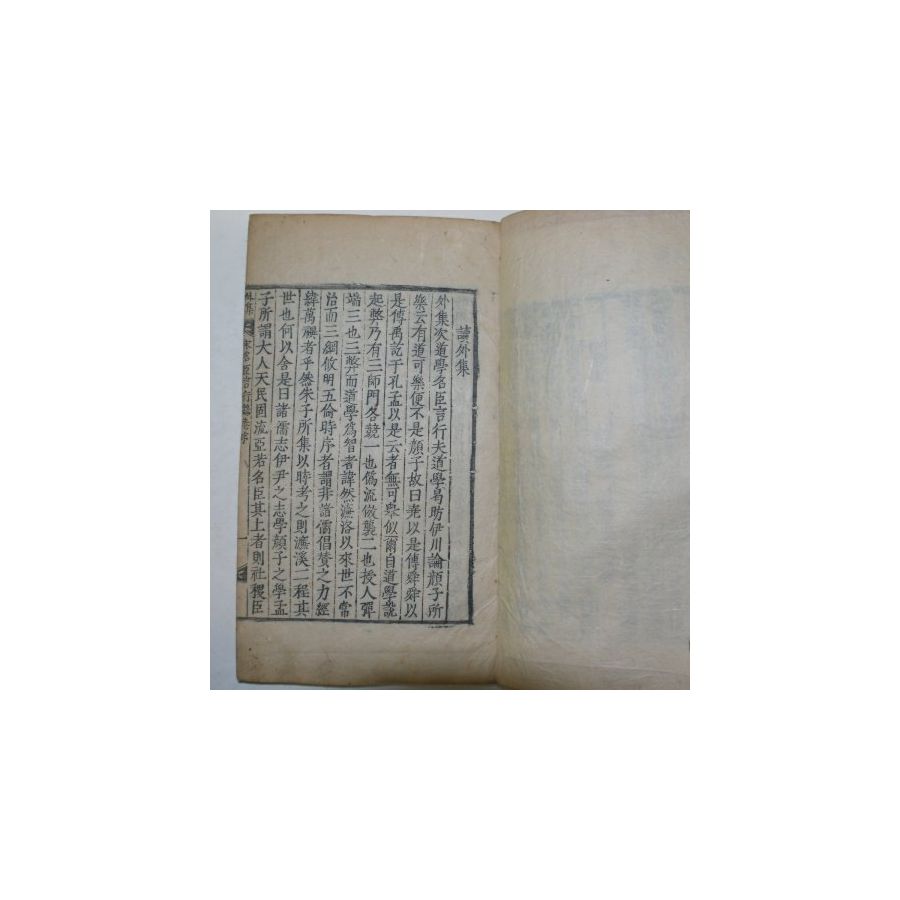 讀外集
外集次道學名臣言行夫道學曷昉伊川論顏子所
樂云有道可樂便不是顏子故曰堯以是傳舜舜以
是傳禹訖于孔孟以是云者無可舉似爾自道學説
起弊乃有三師門各競一也僞流倣襲二也授人彈
端三也三弊而道學爲智者諱然濂洛以來世不常
治而三綱攸明五倫時序者謂非諸儒倡贊之力經
緯萬禩者乎然朱子所集以時考之則濂溪二程其
世也何以舍是曰諸儒志伊尹之志學顏子之學孟
子所謂大人天民固流亞若名臣其上者則社稷臣
外集 言行 集序 八